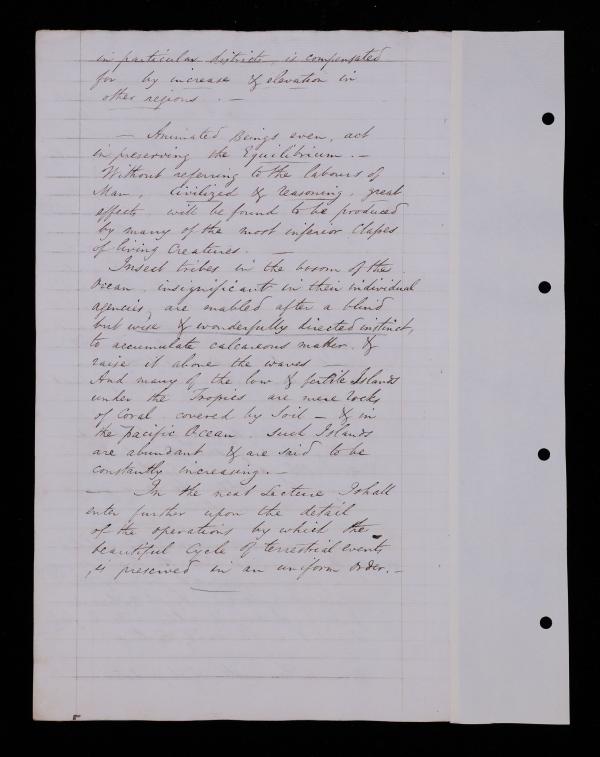 in particular districts, is compensated
for by increase & elevation in
other regions. —
— Animated Beings even, act
in preserving the Equilibrium. —
Without referring to the labours of
Man, Civilized & reasoning, great
effects will be found to be produced
by many of the most inferior Classes
of living Creatures. —
Insect tribes in the bosom of the
Ocean, insignificant in their individual
agencies, are enabled after a blind
but wise & wonderfully directed instinct,
to accumulate calcareous matter, &
raise it above the waves —
And many of the low & fertile Islands
under the Tropics are mere rocks
of Coral covered by Soil — & in
the pacific Ocean, such Islands
are abundant & are said to be
constantly increasing. —
— In the next Lecture I shall
enter further upon the detail
of the operations by which the
beautiful Cycle of terrestrial events
is preserved in an uniform order. —